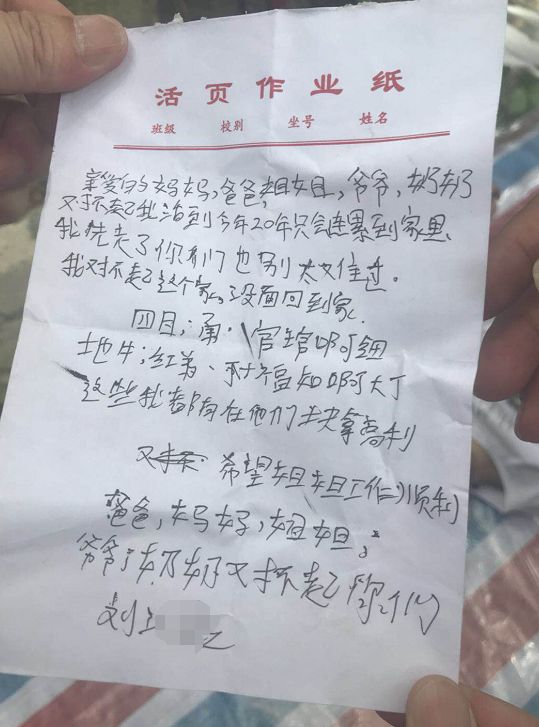 活页作业纸
班级 校别 坐号 姓名
亲爱的妈妈,爸爸,姐姐,爷爷,奶奶
对不起我活到今年20年只会连累到家里、
我先走了你们也别太难过。
我对不起这个家。没面回到家.
四目;涌. 官 阿
地牛;红弟、 阿大丁
这些我都有在他们 拿高利
希望姐姐工作顺利
爸爸,妈妈,姐姐,
爷爷,奶奶对不起你们
刘